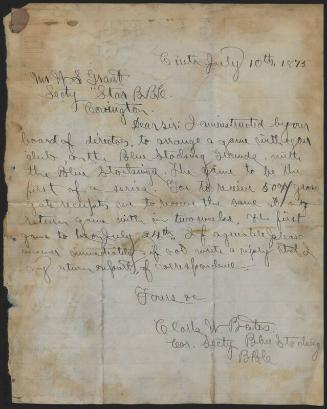 Cinti July 10th, 1875
Mr W S Grant
Secty "Star B.B.C.
Covington.
Dear sir: I am instructed by our
board of directors, to arrange a game with your
club, on the Blue Stocking Grounds, with
the Blue Stockings. The game to be the
first of a series. You to receive 50% gross
gate receipts, we to receive the same at
return game within two weeks. The first
game to be July 24th. If agreeable please
answer immediately; if not write a reply that I
my return on part of correspondence.
Yours &c
Clark W Bates
Cor. Secty Blue Stocking
B.B.C.